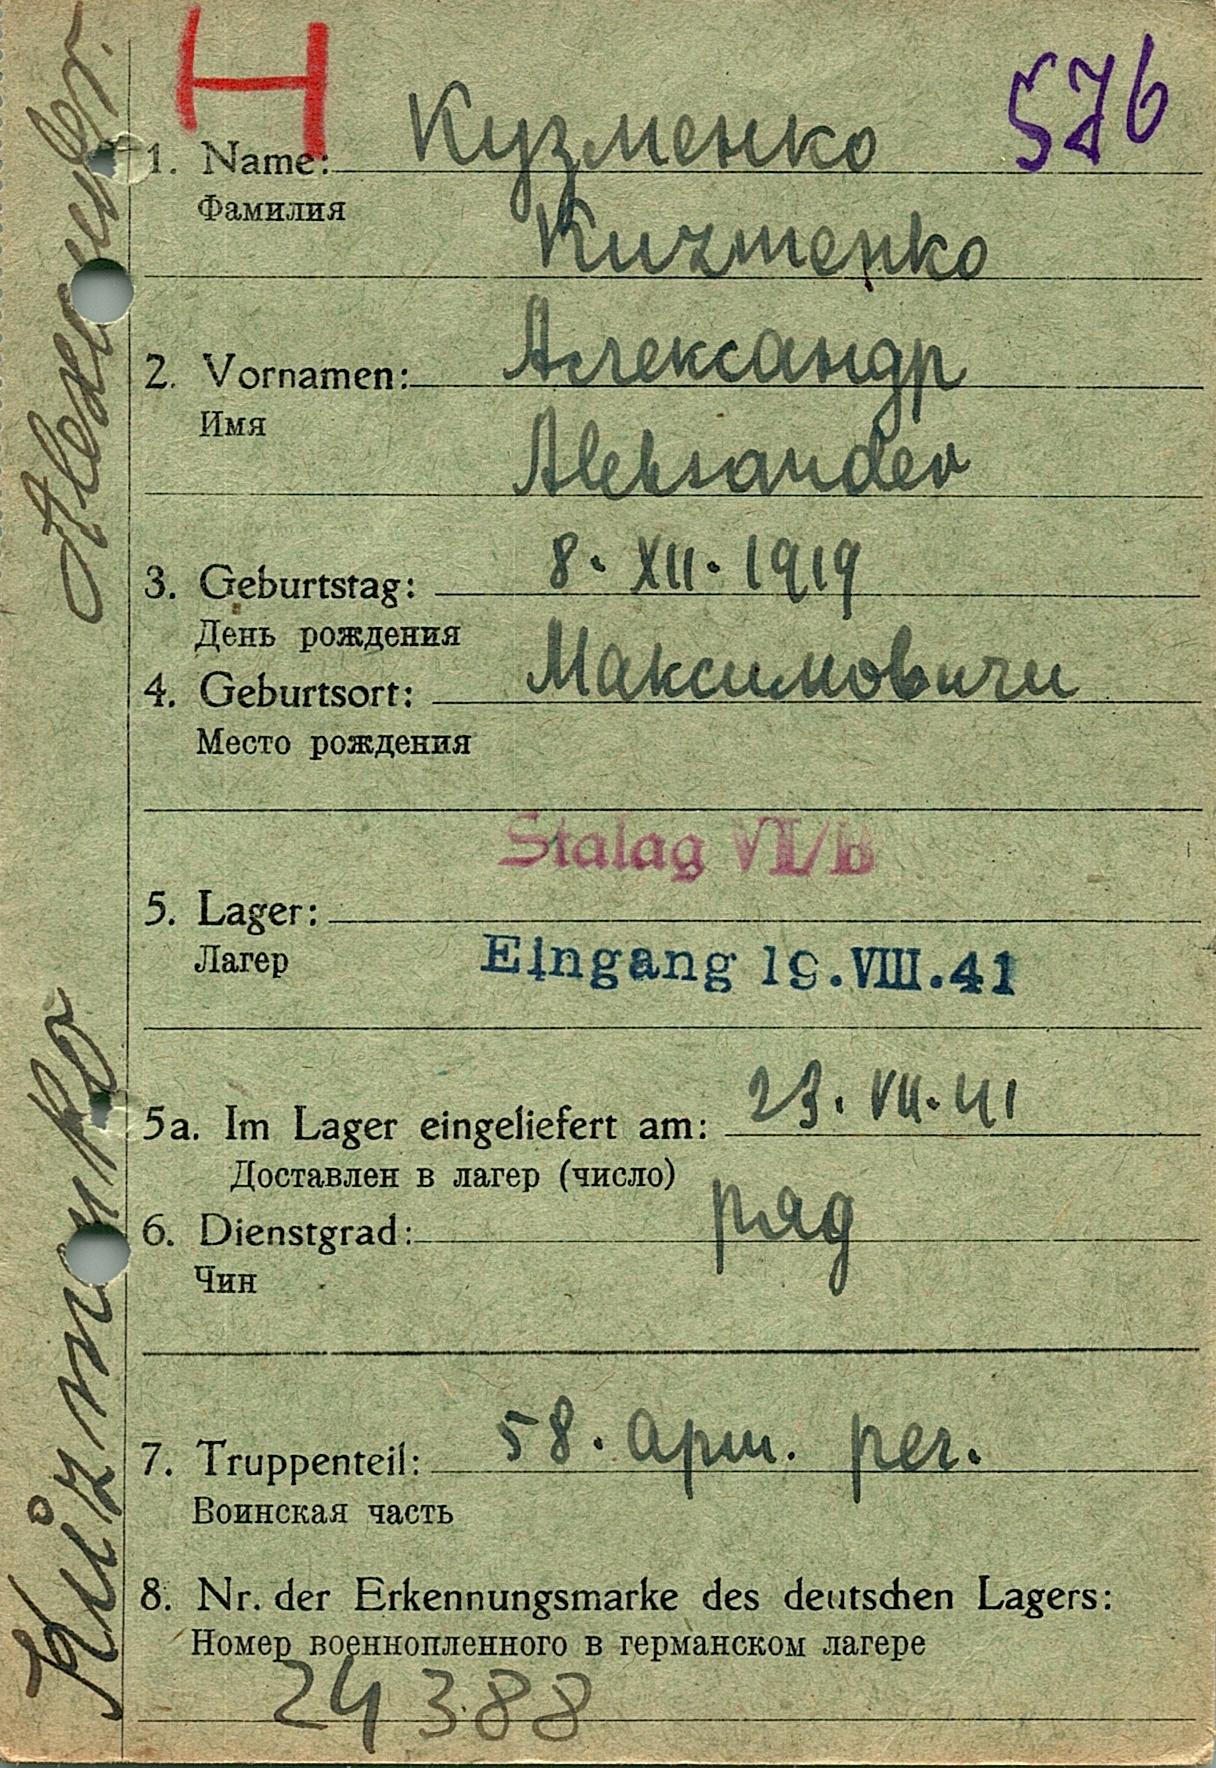 Н
576
1. Name: Кузменко
Фамилия
Kuzmenko
2. Vornamen: Александр
Имя
Aleksander
3. Geburtstag: 8. XII. 1919
День рождения
4. Geburtsort: Максимовичи
Место рождения
Stalag VI/B
5. Lager:
Лагер
Eingang 19.VIII.41
5a. Im Lager eingeliefert am: 23. VII. 41
Доставлен в лагер (число)
6. Dienstgrad: ряд
Чин
7. Truppenteil: 58. арт. рег.
Воинская часть
8. Nr. der Erkennungsmarke des deutschen Lagers:
Номер военнопленного в германском лагере
24388
Kuzmenko Alexander.